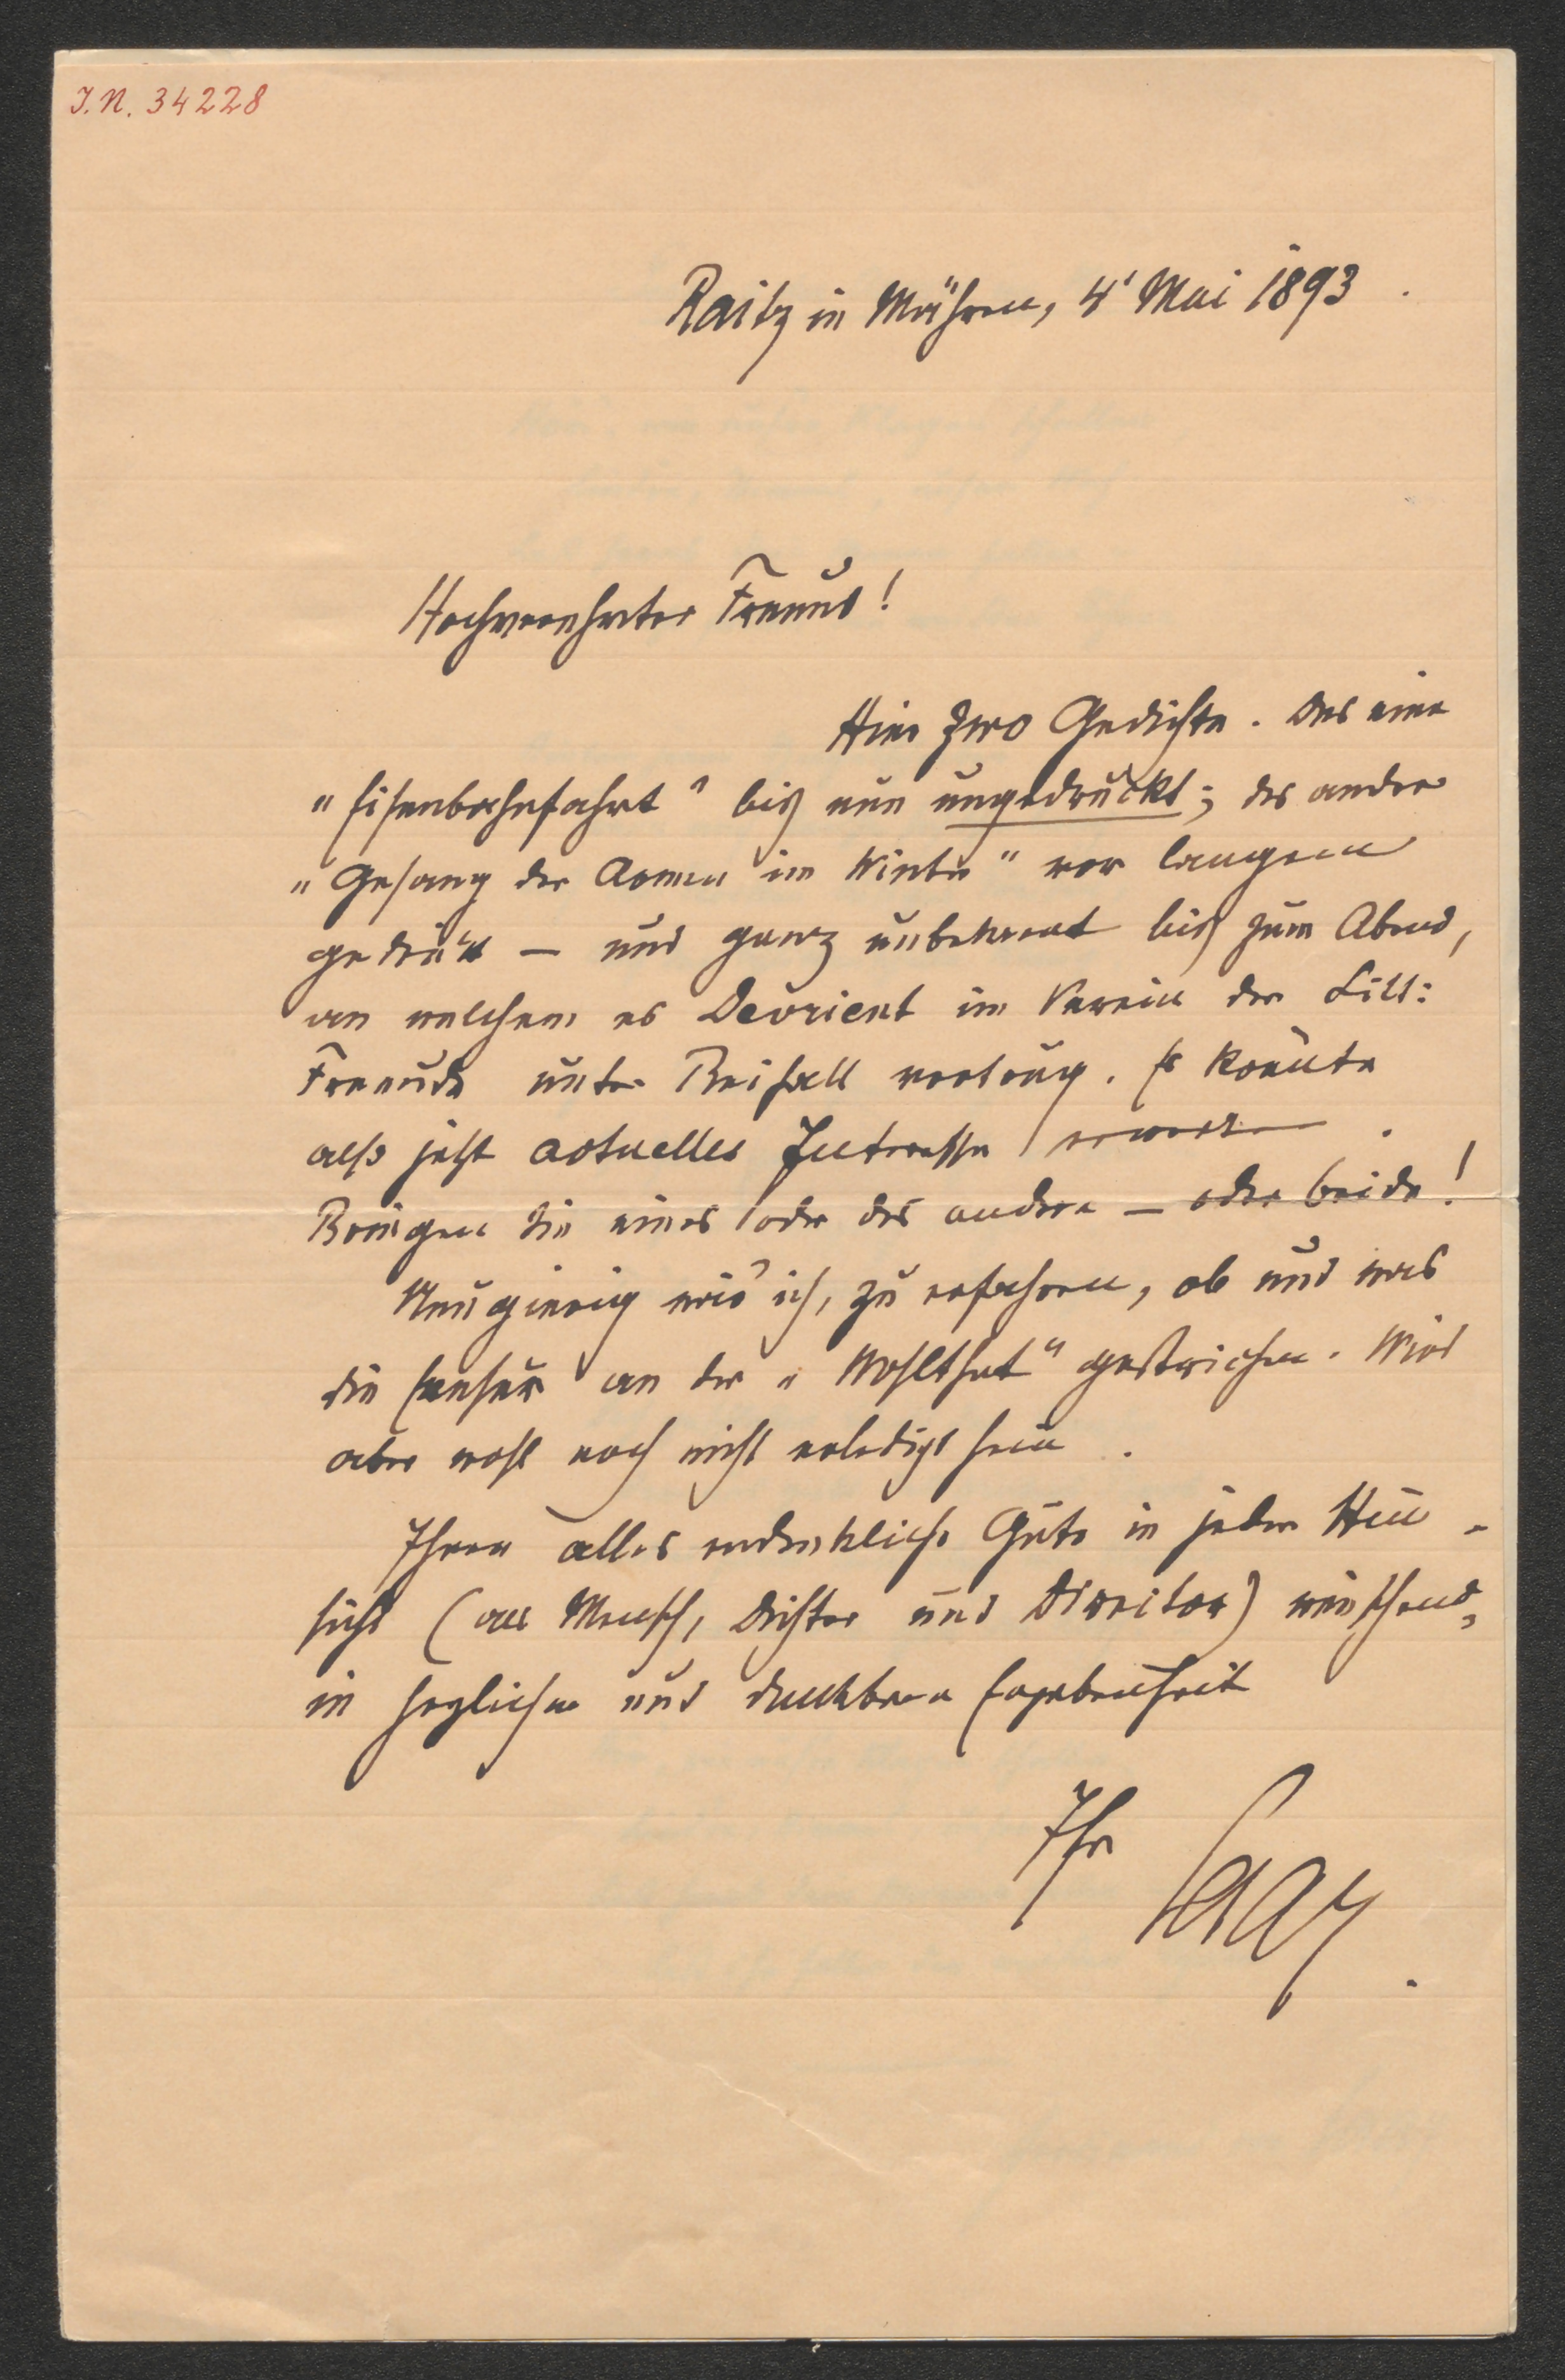 J.N. 34228
Raitz in Mähren, 4' Mai 1893.
Hochverehrter Freund!
Hier zwo Gedichte. Das eine
"Eisenbahnfahrt" bis nun ungedruckt; das andere
"Gesang der Armen im Winter" vor langem
gedruckt – und ganz unbekannt bis zum Abend,
an welchem es Devrient im Verein der Litt:
Freunde unter Beifall vortrug. Es könnte
also jetzt actuelles Interesse erwecken.
Bringen Sie eines oder das andere – oder beide!
Neugierig wär' ich, zu erfahren, ob und was
die Censur an der "Wohlthat" gestrichen. Wird
aber wohl noch nicht erledigt sein.
Ihnen alles erdenkliche Gute in jeder Hin-
sicht (als Mensch, Dichter und Director) wünschend,
in herzlicher und dankbarer Ergebenheit
Ihr Saar.